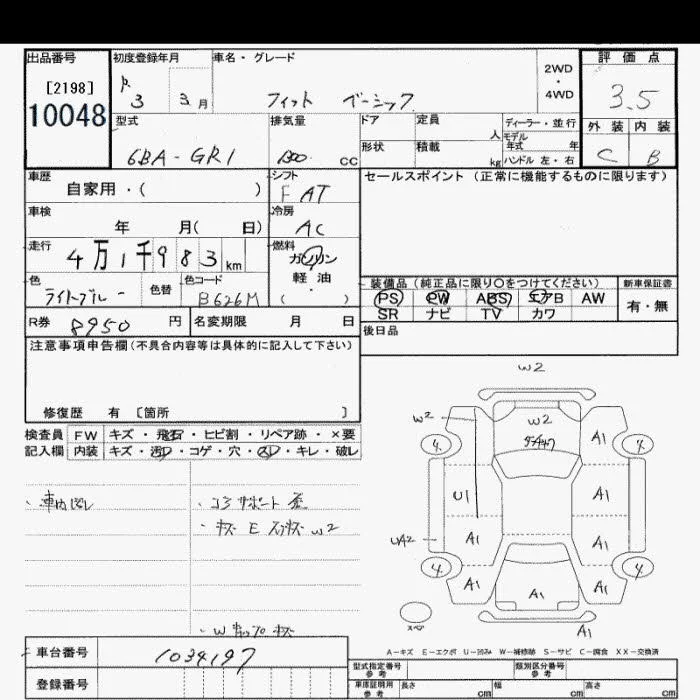 出品番号
[2198]
10048
初度登録年月
R 3 3 月
車名・グレード
フィット ベーシック
2WD
・
4WD
評価点
3.5
外装 内装
C B
型式
6BA-GR1
排気量
1300 cc
ドア
形状
定員
人
積載
kg
ディーラー・並行
モデル
年式 年
ハンドル 左・右
車歴
自家用・( )
シフト
F AT
セールスポイント(正常に機能するものに限ります)
車検
年 月( 日)
冷房
AC
走行
4万1千983km
燃料
ガソリン
軽油
( )
色
ライトブルー
色替
色コード
B626M
装備品(純正品に限り○をつけてください)
新車保証書
PS PW ABS エアB AW
SR ナビ TV カワ
有・無
R券 8950 円
名変期限 月 日
後日品
注意事項申告欄(不具合内容等は具体的に記入して下さい)
修復歴 有 [箇所 ]
検査員
記入欄
FW キズ・飛石・ヒビ割・リペア跡・×要
内装 キズ・汚レ・コゲ・穴・スレ・キレ・破レ
W2
W2
W2
A1
4
4
U1
A1
UA2
A1
A1
4
4
A1
A1
A1
A1
・コアサポート
・キズ E W2
スペア
車台番号
1034197
登録番号
A-キズ E-エクボ U-凹み W-補修跡 S-サビ C-腐食 XX-交換済
型式指定番号
参考
類別区分番号
参考
車庫証明用
参考
長さ cm
幅 cm
高さ cm